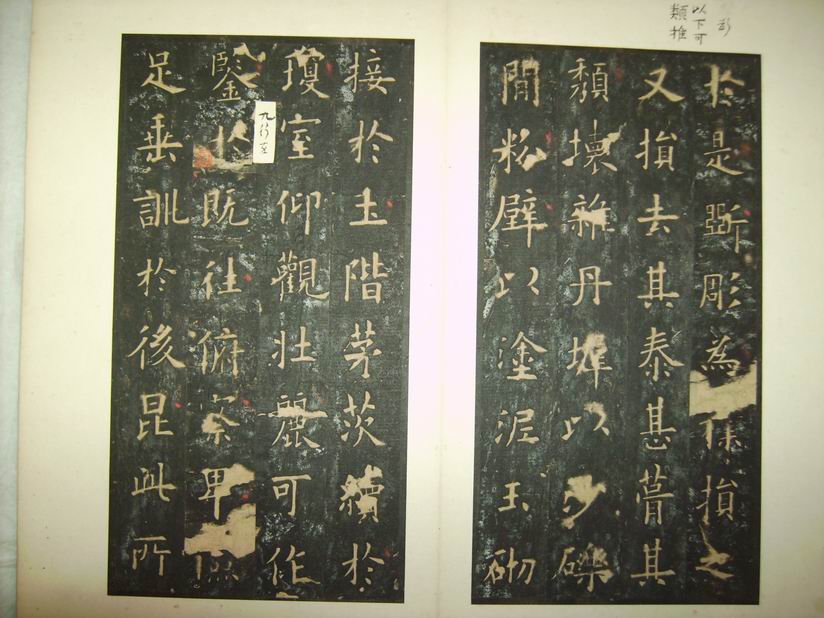 以下可
類推
於是斲彫為損之
又損去其泰甚葺其
頹壞雜丹墀以沙礫
間粉壁以塗泥玉砌
接於土階茅茨續於
瓊室仰觀壯麗可作
鑒於既往俯察卑
足垂訓於後昆此所